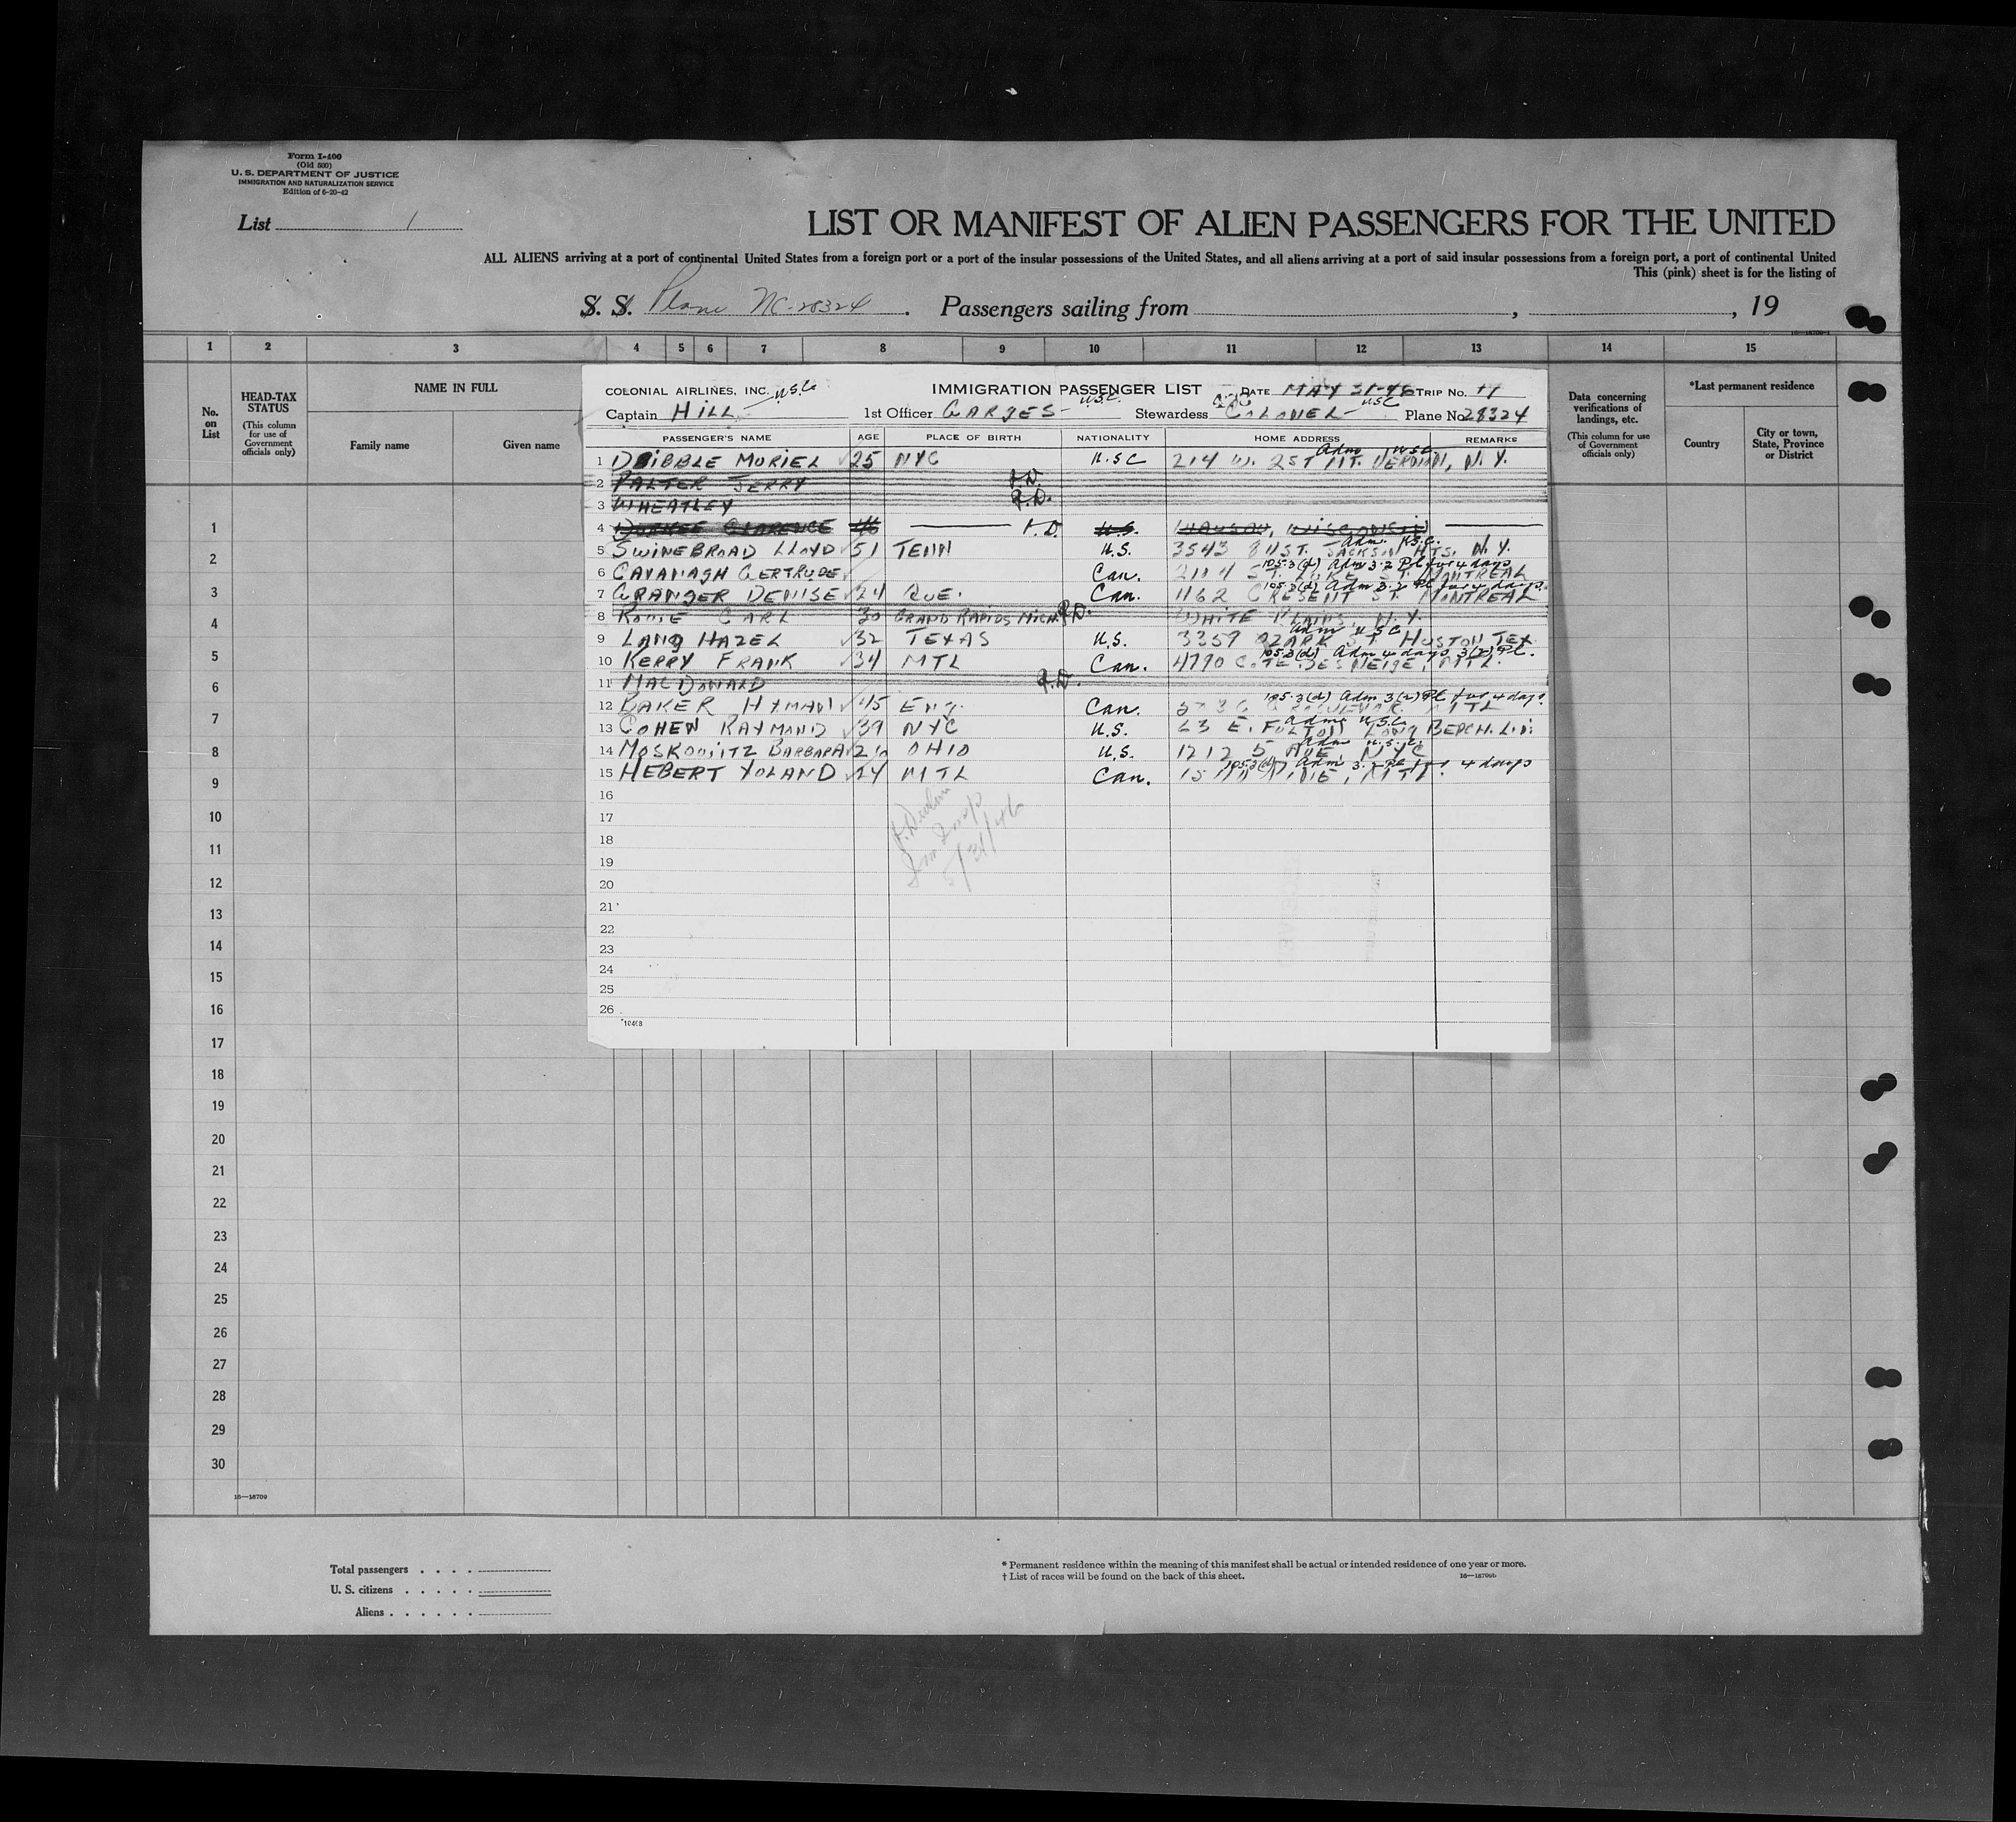 Form I-400
(Old 500)
U. S. DEPARTMENT OF JUSTICE
IMMIGRATION AND NATURALIZATION SERVICE
Edition of 6-20-42
List 1
LIST OR MANIFEST OF ALIEN PASSENGERS FOR THE UNITED
ALL ALIENS arriving at a port of continental United States from a foreign port or a port of the insular possessions of the United States, and all aliens arriving at a port of said insular possessions from a foreign port, a port of continental United
This (pink) sheet is for the listing of
S. S. Plane NC-28324. Passengers sailing from , , 19
1 2 3 4 5 6 7 8 9 10 11 12 13 14 15
No. on List
HEAD-TAX STATUS
(This column for use of Government officials only)
NAME IN FULL
Family name Given name
Data concerning verifications of landings, etc.
(This column for use of Government officials only)
*Last permanent residence
Country
City or town, State, Province or District
COLONIAL AIRLINES, INC. U.S.C. IMMIGRATION PASSENGER LIST DATE MAY 31-46 TRIP No.
Captain HILL 1st Officer GARGES- U.S.C. Stewardess COLONEL- USC Plane No 28324
PASSENGER'S NAME AGE PLACE OF BIRTH NATIONALITY HOME ADDRESS REMARKS
1 DRIBBLE MURIEL 25 NYC U.S.C 214 W. 2ST MT. VERNON, N.Y. Adm USC
2 PALTER JERRY
3 WHEATLEY
4 CLARENCE 46 U.S. WAUSAU, WISCONSIN
5 SWINEBROAD LLOYD 51 TENN U.S. 3543 84 ST. JACKSON HTS. N.Y. Adm. U.S.C.
6 CAVANAGH GERTRUDE Can. ST. LUKE ST. MONTREAL 105.3(d) Adm 3.2 Pl for 4 days
7 GRANGER DENISE 24 QUE. Can. 1162 CRESENT ST. MONTREAL 105.3(d) Adm 3.2 Pl for 4 days.
8 CARL 30 GRAND RAPIDS MICH. WHITE PLAINS, N.Y.
9 LANG HAZEL 32 TEXAS U.S. 3359 OZARK ST HUSTON TEX. Adm U S C
10 KERRY FRANK 34 MTL Can. 4790 COTE DES NEIGE, MTL. 105.3(d) Adm 4 days 3(2) Pl.
11 MACDONALD
12 BAKER HYMAN 45 ENG. Can. MTL 105.3(d) Adm 3(2) Pl for 4 days
13 COHEN RAYMOND 39 NYC U.S. 63 E. FULTON LONG BEACH. L.I. Adm U.S.C.
14 MOSKOWITZ BARBARA OHIO U.S. 1212 5 AVE, NYC Adm U.S.C.
15 HEBERT YOLAND 24 MTL Can. MTL. 105.3(d) Adm 3.2 Pl for 4 days
16
17
18
19
20
21
22
23
24
25
26
5/31/46
10408
1
2
3
4
5
6
7
8
9
10
11
12
13
14
15
16
17
18
19
20
21
22
23
24
25
26
27
28
29
30
16—18709
Total passengers . . . .
U. S. citizens . . . . .
Aliens . . . . . .
* Permanent residence within the meaning of this manifest shall be actual or intended residence of one year or more.
† List of races will be found on the back of this sheet.
16—18709b